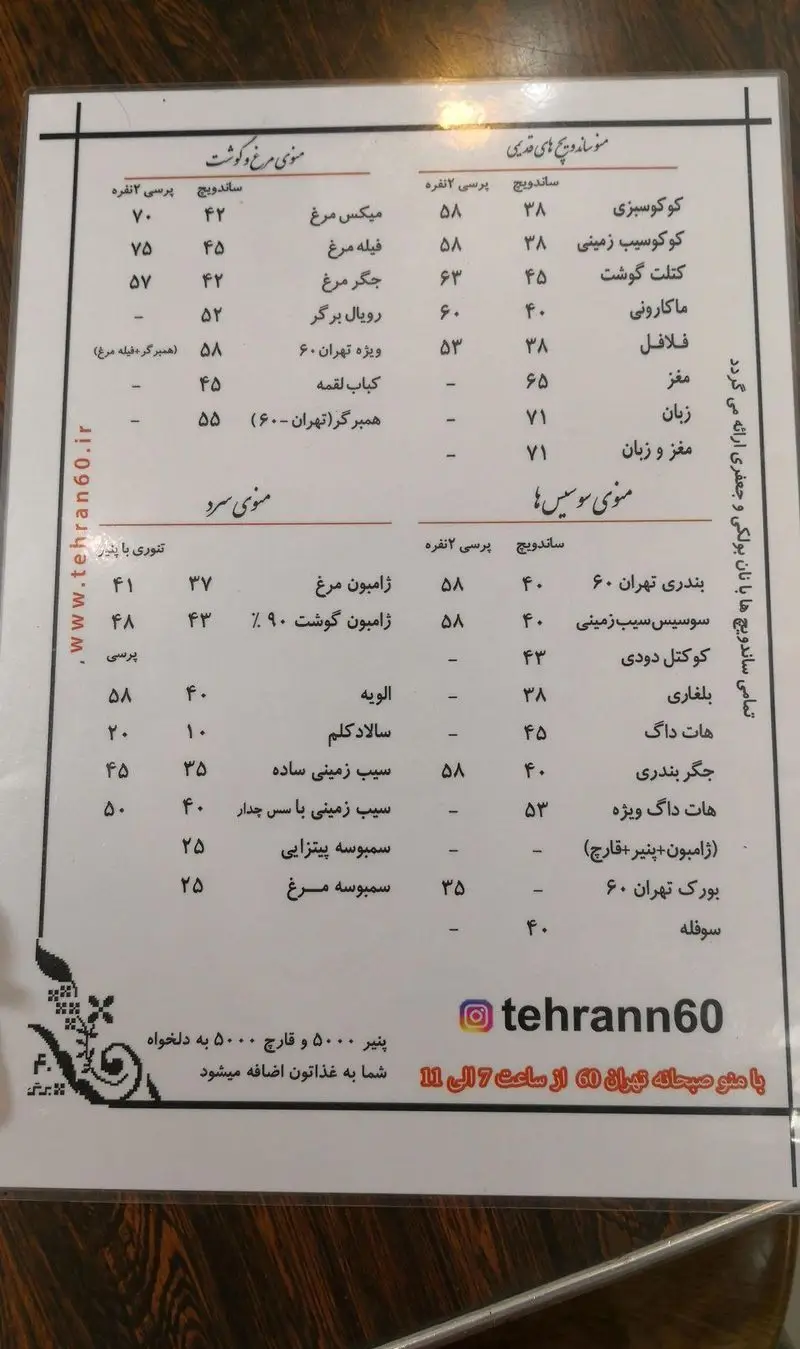 منو ساندویچ های قدیمی
ساندویچ پرسی ۲نفره
کوکوسبزی ۳۸ ۵۸
کوکوسیب زمینی ۳۸ ۵۸
کتلت گوشت ۴۵ ۶۳
ماکارونی ۴۰ ۶۰
فلافل ۳۸ ۵۳
مغز ۶۵ -
زبان ۷۱ -
مغز و زبان ۷۱ -
منوی مرغ و گوشت
ساندویچ پرسی ۲نفره
میکس مرغ ۴۲ ۷۰
فیله مرغ ۴۵ ۷۵
جگر مرغ ۴۲ ۵۷
رویال برگر ۵۲ -
ویژه تهران ۶۰ ۵۸ (همبرگر+فیله مرغ)
کباب لقمه ۴۵ -
همبرگر(تهران -۶۰) ۵۵ -
منوی سوسیس ها
ساندویچ پرسی ۲نفره
بندری تهران ۶۰ ۴۰ ۵۸
سوسیس سیب زمینی ۴۰ ۵۸
کوکتل دودی ۴۳ -
بلغاری ۳۸ -
هات داگ ۴۵ -
جگر بندری ۴۰ ۵۸
هات داگ ویژه ۵۳ -
(ژامبون+پنیر+قارچ) - -
بورک تهران ۶۰ - ۳۵
سوفله ۴۰ -
منوی سرد
تنوری با پنیر
ژامبون مرغ ۳۷ ۴۱
ژامبون گوشت ۹۰ ٪ ۴۳ ۴۸
پرسی
الویه ۴۰ ۵۸
سالاد کلم ۱۰ ۲۰
سیب زمینی ساده ۳۵ ۴۵
سیب زمینی با سس چدار ۴۰ ۵۰
سمبوسه پیتزایی ۲۵
سمبوسه مرغ ۲۵
تمامی ساندویچ ها با نان بولکی و جعفری ارائه می گردد
www.tehran60.ir
tehrann60
با منو صبحانه تهران 60 از ساعت 7 الی 11
پنیر ۵۰۰۰ و قارچ ۵۰۰۰ به دلخواه
شما به غذاتون اضافه میشود